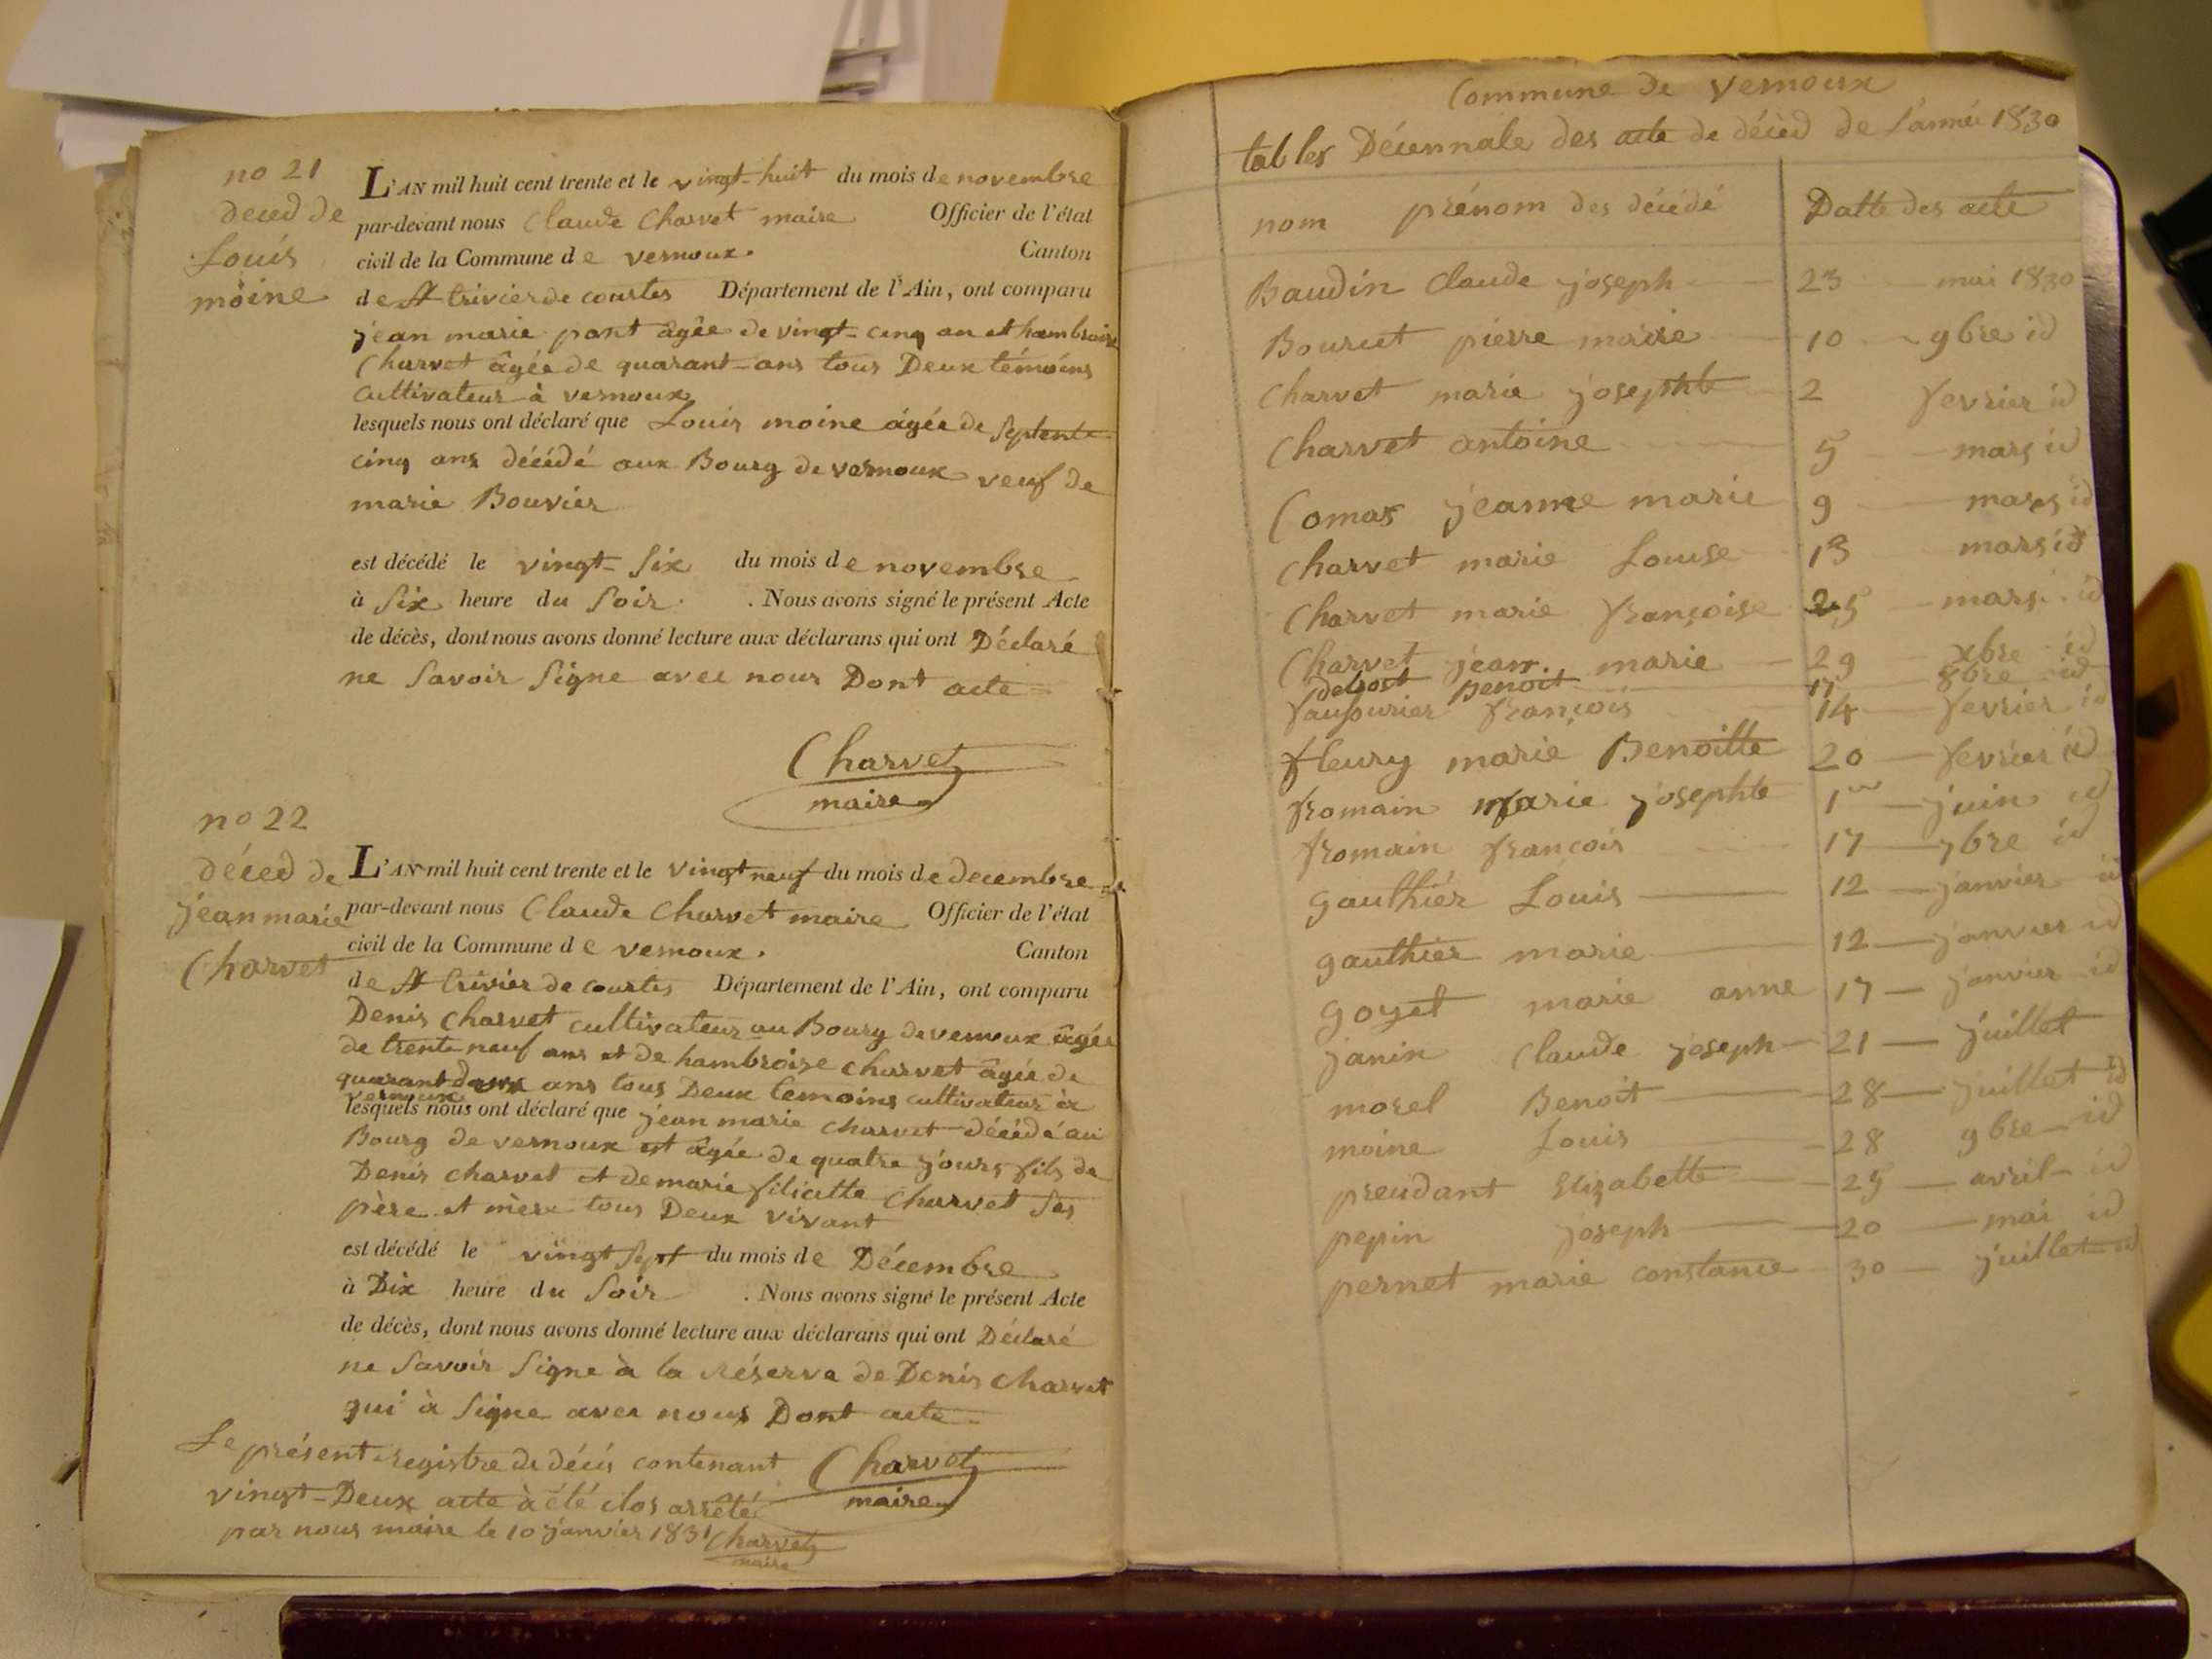 no 21
deced de
Louis
moine
L'AN mil huit cent trente et le vingt-huit du mois de novembre
par-devant nous Claude Charvet maire Officier de l'état
civil de la Commune de vernoux. Canton
de St trivier de courtes Département de l'Ain, ont comparu
jean marie pont âgée de vingt-cinq an et hambroise
Charvet âgée de quarant-ans tous Deux témoins
cultivateur à vernoux
lesquels nous ont déclaré que Louis moine âgée de septente
cinq ans décédé aux Bourg de vernoux veuf de
marie Bouvier
est décédé le vingt-six du mois de novembre
à six heure du soir. . Nous avons signé le présent Acte
de décès, dont nous avons donné lecture aux déclarans qui ont Déclaré
ne savoir signe avec nous Dont acte
Charvet
maire
no 22
déced de
jean marie
Charvet
L'AN mil huit cent trente et le vingt neuf du mois de decembre
par-devant nous Claude Charvet maire Officier de l'état
civil de la Commune de vernoux. Canton
de St trivier de courtes Département de l'Ain, ont comparu
Denis Charvet cultivateur au Bourg de vernoux âgée
de trente neuf ans et de hambroise Charvet âgée de
quarant deux ans tous Deux temoins cultivateur à
vernoux
lesquels nous ont déclaré que jean marie Charvet décédé au
Bourg de vernoux et âgée de quatre jours fils de
Denis Charvet et de marie filicitte Charvet ses
père et mère tous Deux vivant
est décédé le vingt sept du mois de Décembre
à Dix heure du soir . Nous avons signé le présent Acte
de décès, dont nous avons donné lecture aux déclarans qui ont Déclaré
ne savoir signe à la réserve de Denis Charvet
qui à signe avec nous Dont acte
Charvet
maire
Le présent registre de décés contenant
vingt-Deux acte à été clos arrêté
par nous maire le 10 janvier 1831 Charvet
maire
Commune de Vernoux
tables Décennale des acte de déced de l'année 1830
nom prénom des décédé Datte des acte
Baudin Claude joseph 23 mai 1830
Bourcet pierre marie 10 9bre id
Charvet marie josephte 2 fevrier id
Charvet antoine 5 mars id
Comas jeanne marie 9 mars id
Charvet marie Louise 13 mars id
Charvet marie françoise 25 mars id
Charvet jean marie 29 xbre id
debost Benoit 17 8bre id
françois 14 fevrier id
fleury marie Benoitte 20 fevrier id
fromain marie josephte 1er juin id
fromain francois 17 7bre id
gauthier Louis 12 janvier id
gauthier marie 12 janvier id
goyet marie anne 17 janvier id
janin Claude joseph 21 juillet
morel Benoit 28 juillet id
moine Louis 28 9bre id
preudant Elizabette 25 avril id
pepin joseph 20 mai id
pernet marie constance 30 juillet id